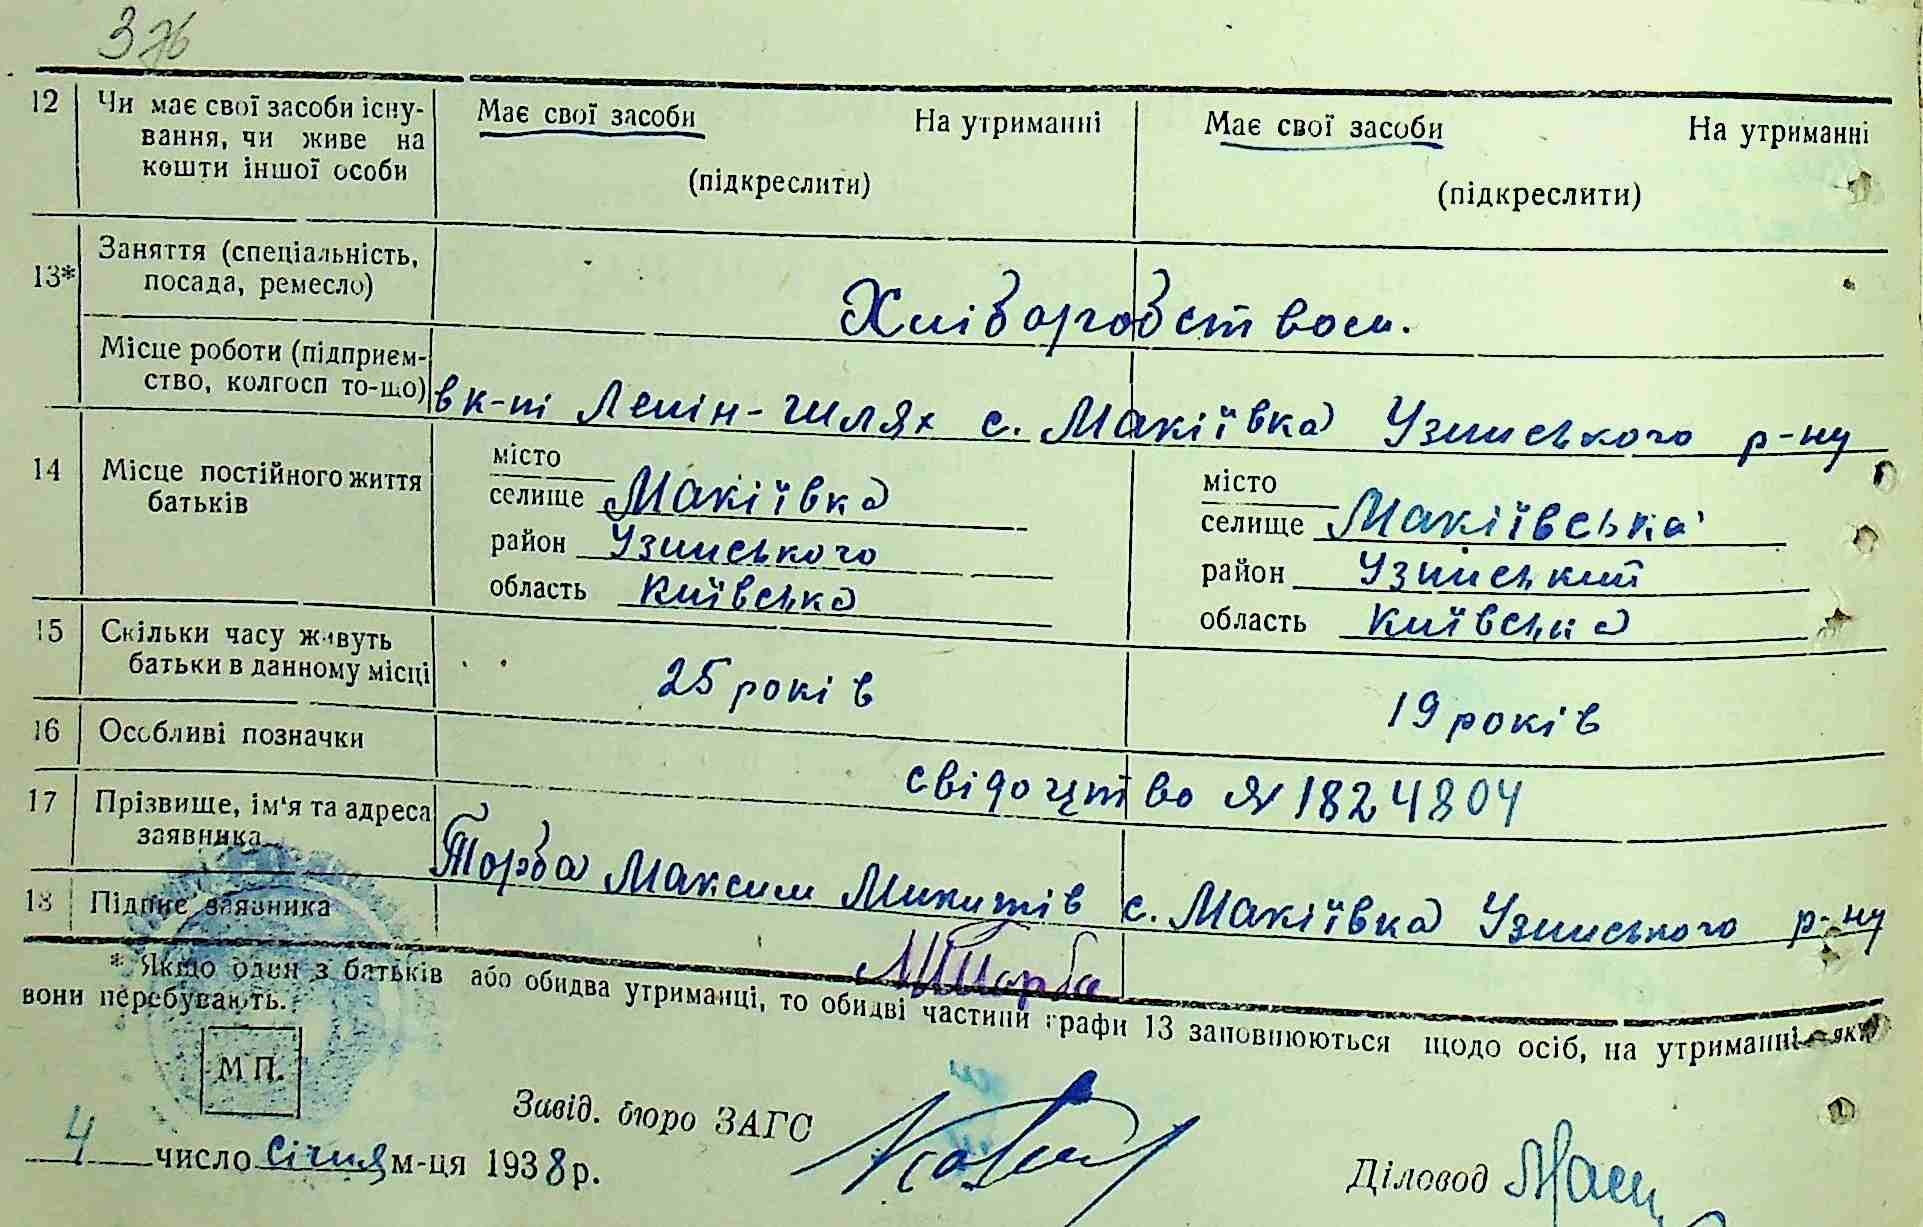 376
12 Чи має свої засоби існу-
вання, чи живе на
кошти іншої особи
Має свої засоби На утриманні
(підкреслити)
Має свої засоби На утриманні
(підкреслити)
13* Заняття (спеціальність,
посада, ремесло)
Хліборобством.
Місце роботи (підприєм-
ство, колгосп то-що)
в к-пі Ленін-шлях с. Макіївка Узинського р-ну
14 Місце постійного життя
батьків
місто
селище Макіївка
район Узинського
область Київська
місто
селище Макіївська
район Узинський
область Київська
15 Скільки часу живуть
батьки в данному місці
25 років
19 років
16 Особливі позначки
свідоцтво № 1824804
17 Прізвище, ім'я та адреса
заявника
Торба Максим Микитів с. Макіївка Узинського р-ну
18 Підпис заявника
МТорба
* Якщо один з батьків або обидва утриманці, то обидві частини графи 13 заповнюються щодо осіб, на утриманні яких
вони перебувають.
М П.
Завід. бюро ЗАГС
4 число січня м-ця 1938 р.
Діловод